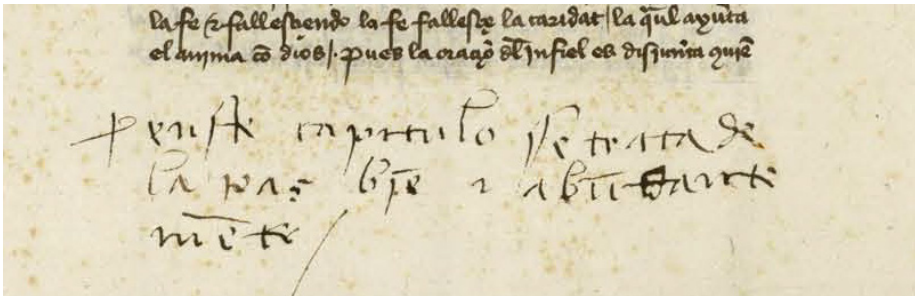 la fe & fallesçiendo la fe fallesçe la caridat / la q̄l ayūta
el anima cō dios /. pues la oraçiō dl̄ infiel es disiunta quiē
en este capitulo se trata de
la paz biē z abūdante
mēte /